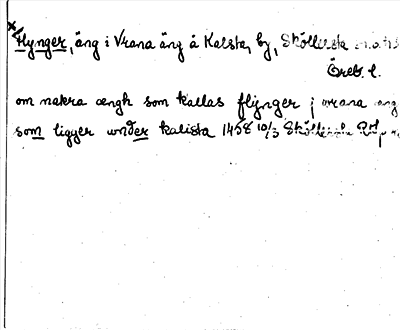 *Flynger, äng i Vrana äng å Kalsta by, Sköllersta
Öreb. l.
om nakra ængh som kallas flynger j vrana æng
som ligger under kalista 1458 10/3 Sköllersta